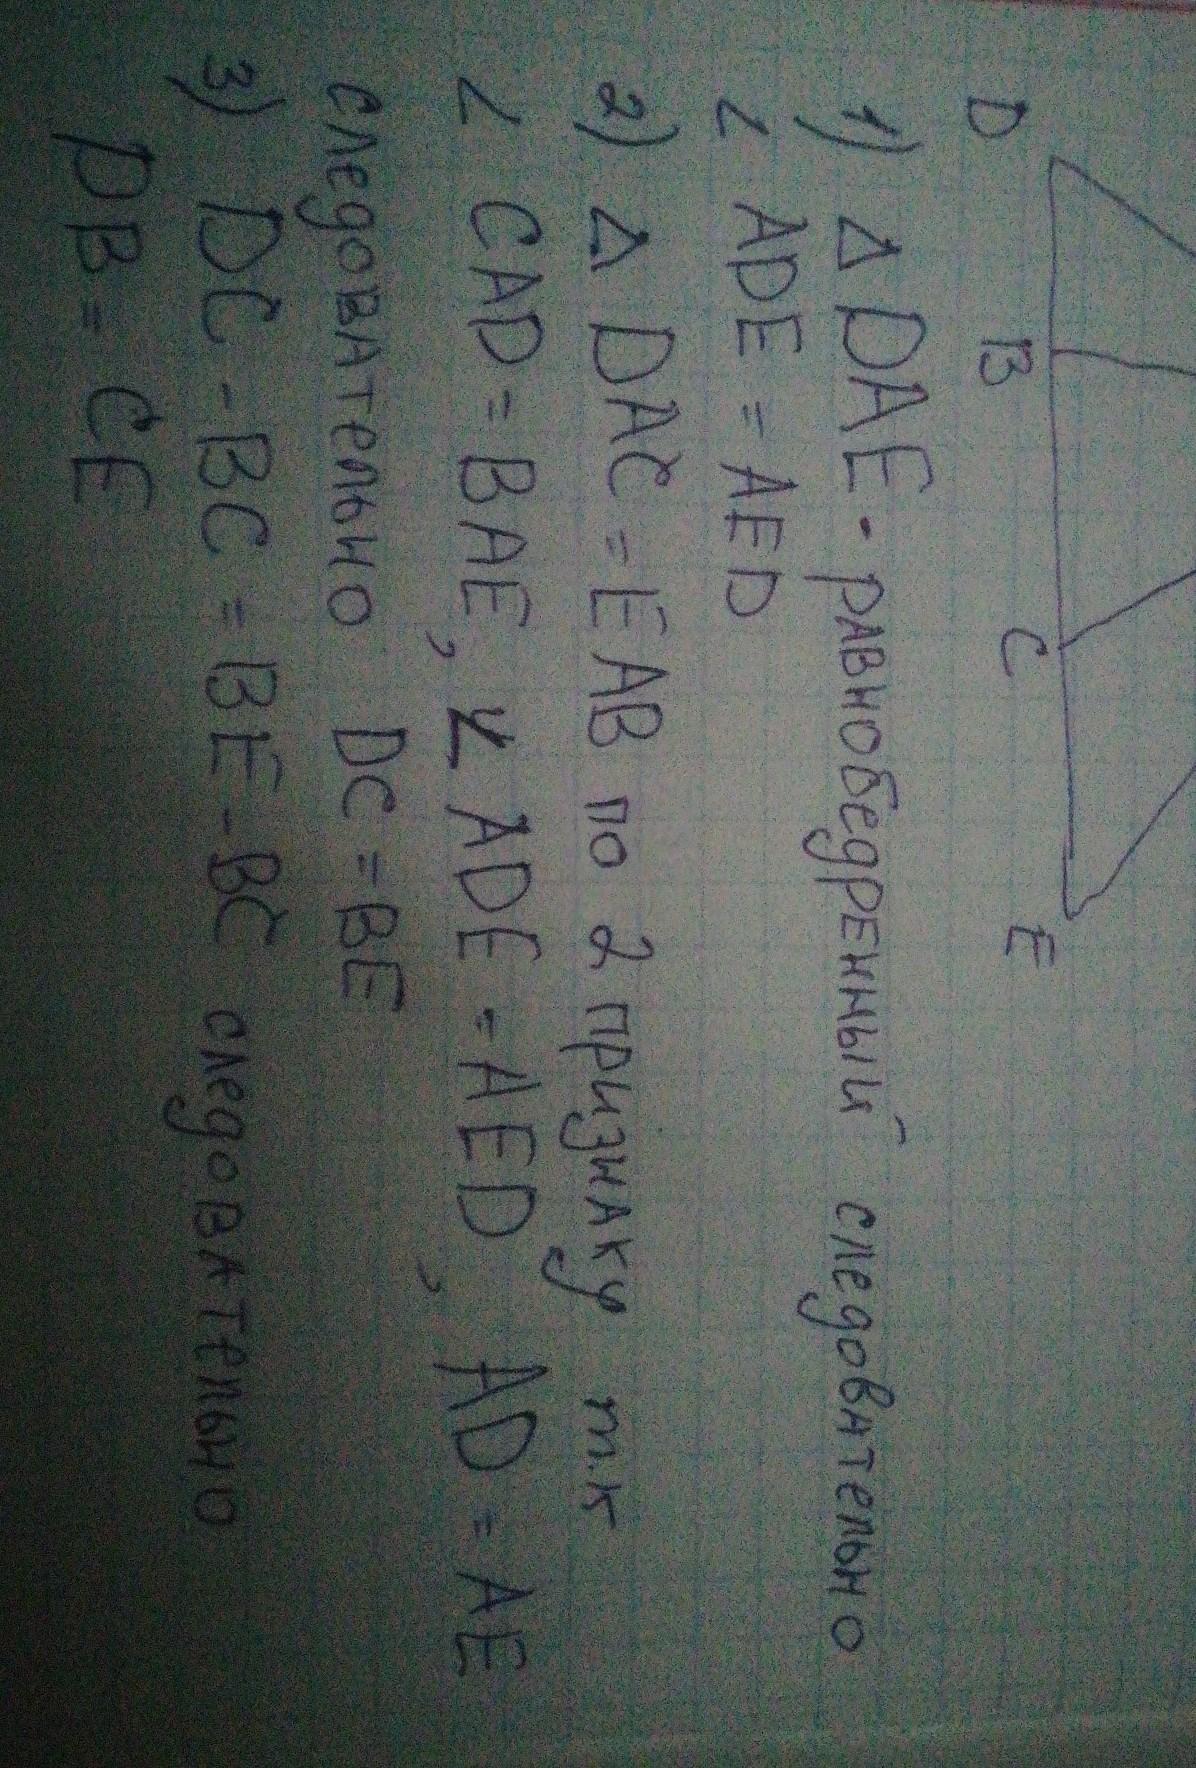 D B C E
1) Δ DAE - равнобедренный следовательно
∠ ADE = AED
2) Δ DAC = EAB по 2 признаку т.к
∠ CAD = BAE, ∠ ADE = AED, AD = AE
следовательно DC = BE
3) DC - BC = BE - BC следовательно
DB = CE